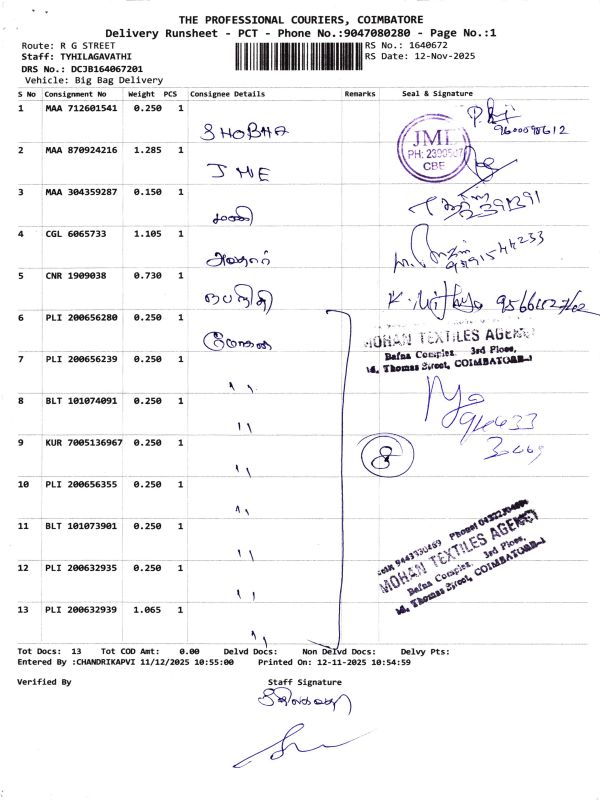 THE PROFESSIONAL COURIERS, COIMBATORE
Delivery Runsheet - PCT - Phone No.:9047080280 - Page No.:1
Route: R G STREET RS No.: 1640672
Staff: TYHILAGAVATHI RS Date: 12-Nov-2025
DRS No.: DCJB164067201
Vehicle: Big Bag Delivery
S No Consignment No Weight PCS Consignee Details Remarks Seal & Signature
1 MAA 712601541 0.250 1 SHOBHA
JML
PH: 2390567
CBE
2 MAA 870924216 1.285 1 JME
3 MAA 304359287 0.150 1 மணி 2391391
4 CGL 6065733 1.105 1
5 CNR 1909038 0.730 1 K. Nithya
6 PLI 200656280 0.250 1 மோகன்
MOHAN TEXTILES AGENCY
Bafna Complex, 3rd Floor,
Thomas Street, COIMBATORE-1
7 PLI 200656239 0.250 1 ''
8 BLT 101074091 0.250 1 ''
9 KUR 7005136967 0.250 1 '' 8
10 PLI 200656355 0.250 1 ''
11 BLT 101073901 0.250 1 ''
MOHAN TEXTILES AGENCY
Bafna Complex, 3rd Floor,
Thomas Street, COIMBATORE-1
12 PLI 200632935 0.250 1 ''
13 PLI 200632939 1.065 1 ''
Tot Docs: 13 Tot COD Amt: 0.00 Delvd Docs: Non Delvd Docs: Delvy Pts:
Entered By :CHANDRIKAPVI 11/12/2025 10:55:00 Printed On: 12-11-2025 10:54:59
Verified By Staff Signature